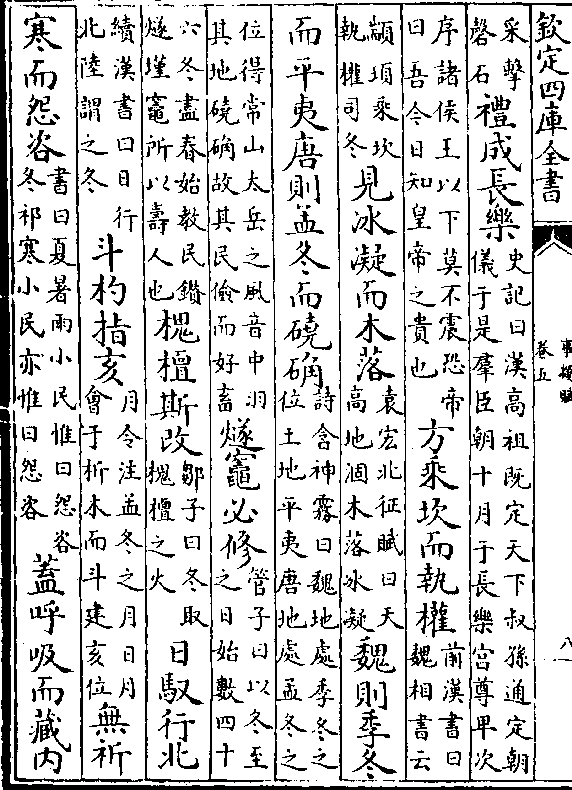 欽定四庫全書
事類賦
卷五
八
采擊
磬石
禮成長樂
史記曰漢高祖既定天下叔孫通定朝
儀于是羣臣朝十月于長樂宫尊卑次
序諸侯王以下莫不震恐帝
曰吾今日知皇帝之貴也
方乘坎而執權
前漢書曰
魏相書云
顓頊乘坎
執權司冬
見冰凝而木落
袁宏北征賦曰天
高地涸木落冰凝
魏則季冬
而平夷唐則孟冬而磽确
詩含神霧曰魏地處季冬之
位土地平夷唐地處孟冬之
位得常山太岳之風音中羽
其地磽确故其民儉而好畜
燧竈必修
管子曰以冬至
之日始數四十
六冬盡春始教民鑽
燧墐竈所以壽人也
槐檀斯改
鄒子曰冬取
槐檀之火
日馭行北
續漢書曰日行
北陸謂之冬
斗杓指亥
月令注孟冬之月日月
會于析木而斗建亥位
無祈
寒而怨咨
書曰夏暑雨小民惟曰怨咨
冬祁寒小民亦惟曰怨咨
蓋呼吸而藏内